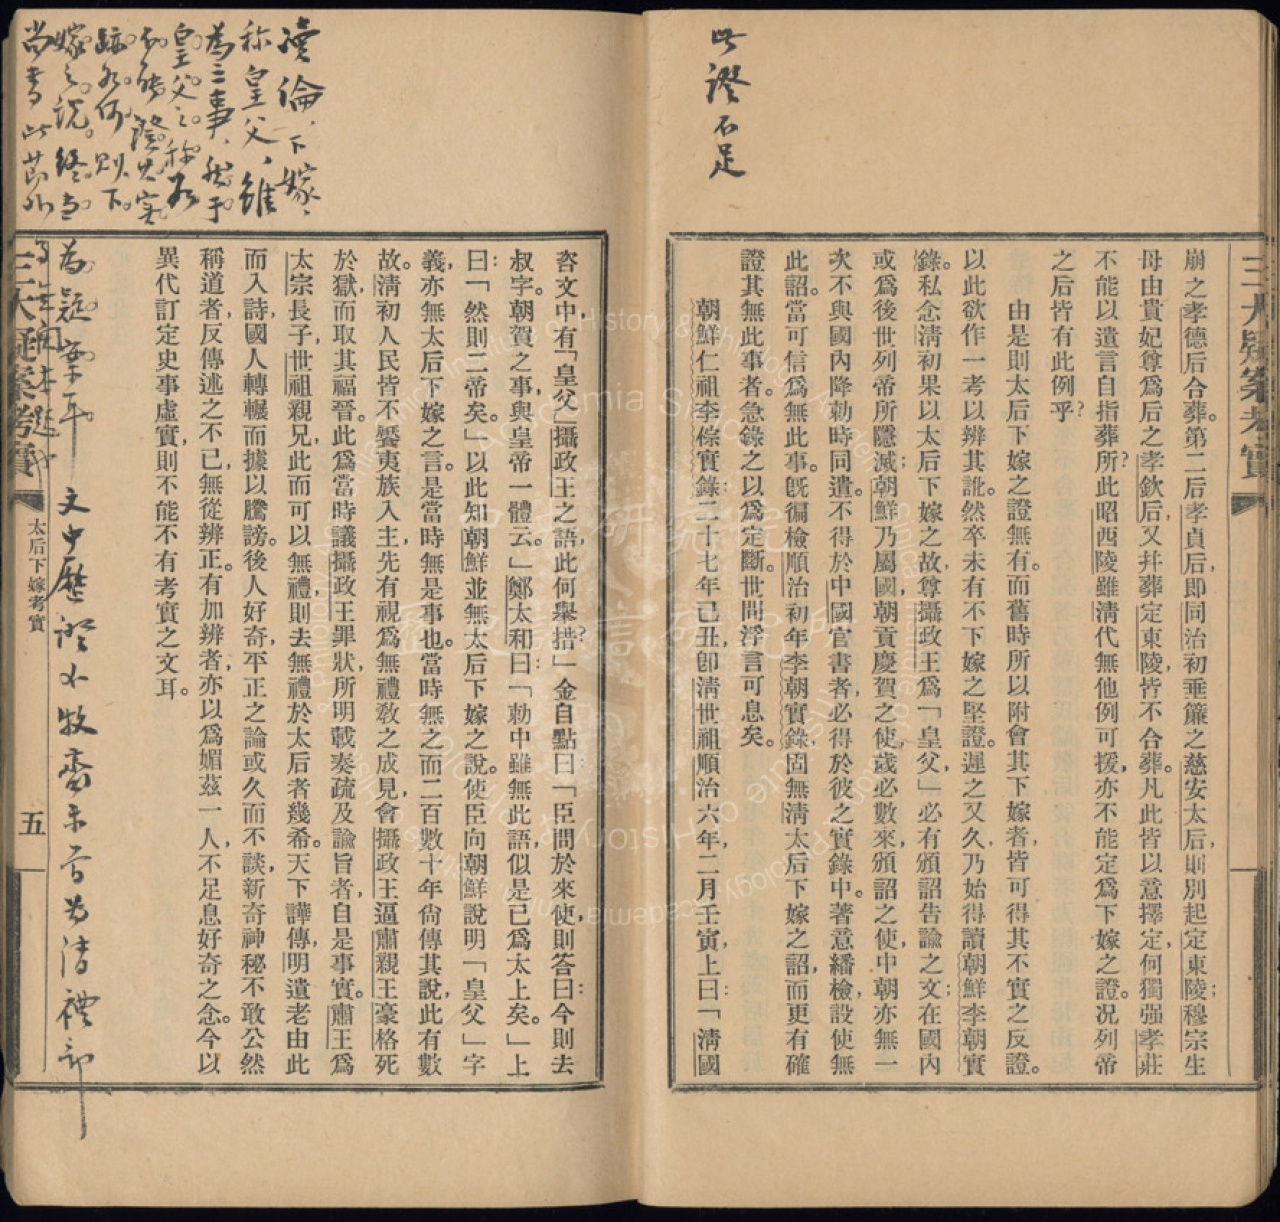 此證不足
三大疑案考實
崩之孝德后合葬。第二后孝貞后，即同治初垂簾之慈安太后，則別起定東陵；穆宗生
母由貴妃尊爲后之孝欽后，又幷葬定東陵，皆不合葬。凡此皆以意擇定，何獨强孝莊
不能以遺言自指葬所？此昭西陵雖清代無他例可援，亦不能定爲下嫁之證。况列帝
之后皆有此例乎？
由是則太后下嫁之證無有。而舊時所以附會其下嫁者，皆可得其不實之反證。
以此欲作一考以辨其訛。然卒未有不下嫁之堅證。遲之又久，乃始得讀朝鮮李朝實
錄。私念清初果以太后下嫁之故，尊攝政王爲「皇父」，必有頒詔告諭之文，在國內
或爲後世列帝所隱滅；朝鮮乃屬國，朝貢慶賀之使歲必數來，頒詔之使，中朝亦無一
次不與國內降勅時同遣。不得於中國官書者，必得於彼之實錄中。著意繙檢，設使無
此詔，當可信爲無此事。旣徧檢順治初年李朝實錄，固無清太后下嫁之詔，而更有確
證其無此事者。急錄之以爲定斷。世間浮言可息矣。
朝鮮仁祖李倧實錄：二十七年己丑，卽清世祖順治六年，二月壬寅，上曰：「清國
咨文中有「皇父」攝政王之語，此何舉措？」金自點曰：「臣問於來使，則答曰：今則去
叔字。朝賀之事，與皇帝一體云。」鄭太和曰：「勅中雖無此語，似是已爲太上矣。」上
曰：「然則二帝矣。」以此知朝鮮並無太后下嫁之說。使臣向朝鮮說明「皇父」字
義，亦無太后下嫁之言。是當時無是事也。當時無之而二百數十年尙傳其說，此有數
故。清初人民皆不饜夷族入主，先有視爲無禮教之成見，會攝政王逼肅親王豪格死
於獄，而取其福晉。此爲當時議攝政王罪狀，所明載奏疏及諭旨者，自是事實。肅王爲
太宗長子，世祖親兄，此而可以無禮，則去無禮於太后者幾希。天下譁傳，明遺老由此
而入詩，國人轉輾而據以騰謗。後人好奇，平正之論或久而不談，新奇神秘不敢公然
稱道者，反傳述之不已，無從辨正。有加辨者，亦以爲媚茲一人，不足息好奇之念。今以
異代訂定史事虛實，則不能不有考實之文耳。
三大疑案考實
太后下嫁考實
五
讀論、下嫁、
称皇父、雖
為二事、然于
皇父之称，
不能證其实
跡如何，則下
嫁之説，終当
尚書
為疑案耳
文中歷證
牧齋
為清禮部